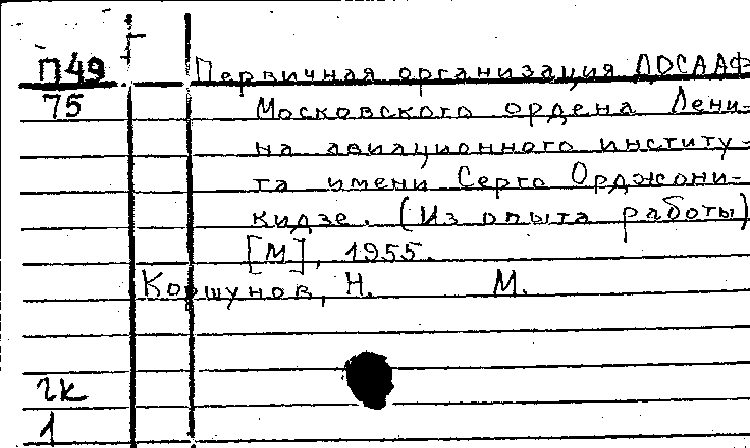 П49 Первичная организация ДОСААФ
75 Московского ордена Лени-
на авиационного институ-
та имени Серго Орджони-
кидзе. (Из опыта работы)
[М], 1955.
Коршунов, Н. М.
2к
1